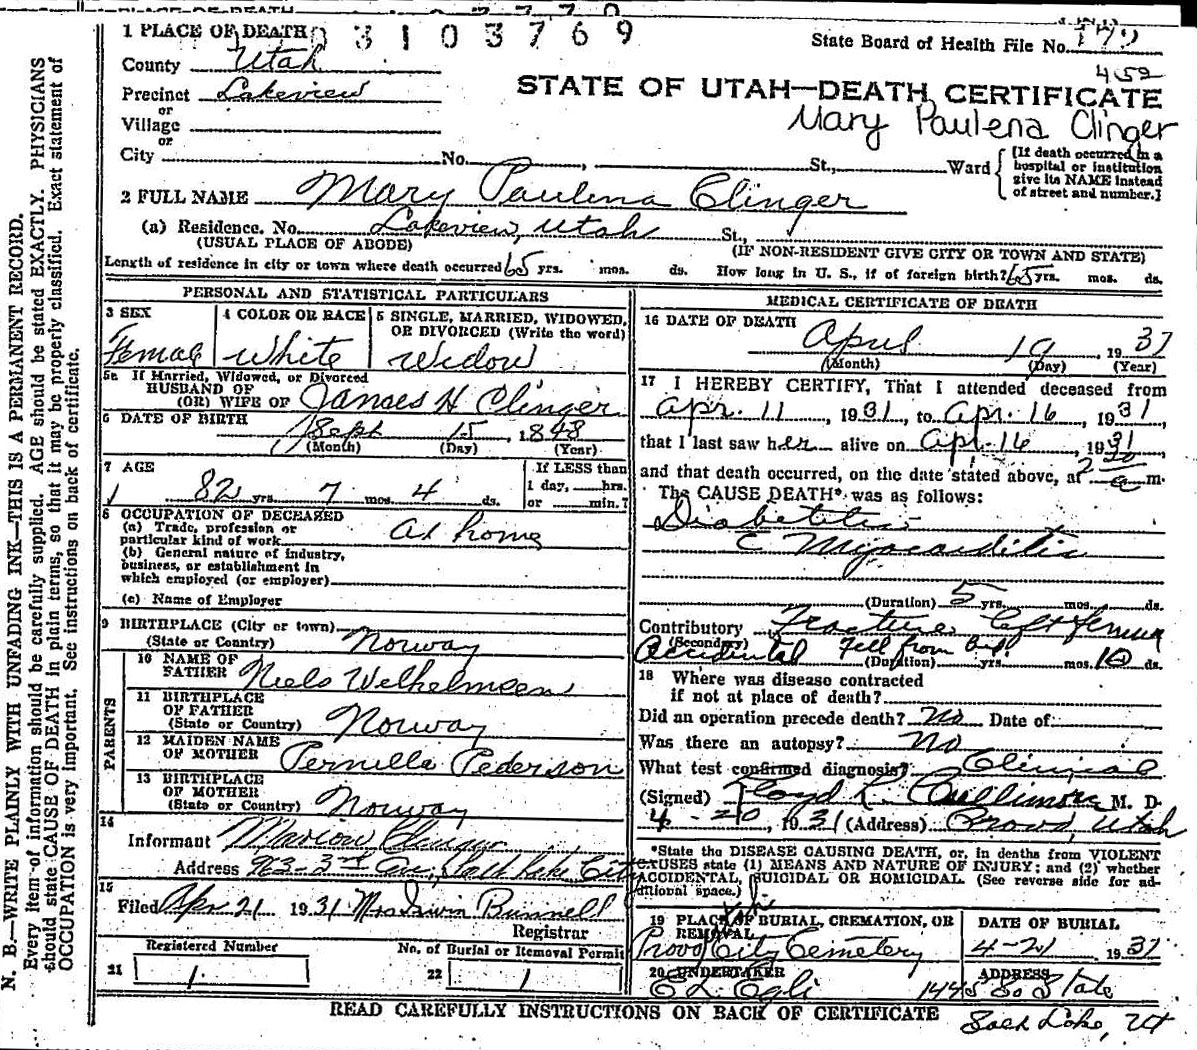 1 PLACE OF DEATH 03103769
State Board of Health File No.
County Utah
452
Precinct Lakeview
STATE OF UTAH—DEATH CERTIFICATE
or
Village
Mary Paulena Clinger
or
City No. , St., Ward
{If death occurred in a
hospital or institution
give its NAME instead
of street and number.}
2 FULL NAME Mary Paulena Clinger
(a) Residence. No. Lakeview, Utah St.,
(USUAL PLACE OF ABODE) (IF NON-RESIDENT GIVE CITY OR TOWN AND STATE)
Length of residence in city or town where death occurred 65 yrs. mos. ds. How long in U. S., if of foreign birth? 65 yrs. mos. ds.
PERSONAL AND STATISTICAL PARTICULARS
3 SEX
Female
4 COLOR OR RACE
White
5 SINGLE, MARRIED, WIDOWED,
OR DIVORCED (Write the word)
Widow
5a If Married, Widowed, or Divorced
HUSBAND OF
(OR) WIFE OF James H Clinger
6 DATE OF BIRTH
Sept 15, 1848
(Month) (Day) (Year)
7 AGE
82 yrs. 7 mos. 4 ds.
If LESS than
1 day, hrs.
or min.?
8 OCCUPATION OF DECEASED
(a) Trade, profession or
particular kind of work At home
(b) General nature of industry,
business, or establishment in
which employed (or employer)
(c) Name of Employer
9 BIRTHPLACE (City or town)
(State or Country) Norway
PARENTS
10 NAME OF
FATHER Niels Welhelmsen
11 BIRTHPLACE
OF FATHER
(State or Country) Norway
12 MAIDEN NAME
OF MOTHER Pernilla Pederson
13 BIRTHPLACE
OF MOTHER
(State or Country) Norway
14
Informant Marion Clinger
Address 963-3rd Av., Salt Lake City
15
Filed Apr 21 1931 Mrs Irwin Bunnell
Registrar
Registered Number
21 1
No. of Burial or Removal Permit
22 1
MEDICAL CERTIFICATE OF DEATH
16 DATE OF DEATH
April 19, 1931
(Month) (Day) (Year)
17 I HEREBY CERTIFY, That I attended deceased from
Apr. 11, 1931, to Apr. 16, 1931,
that I last saw her alive on Apr. 16, 1931
and that death occurred, on the date stated above, at 2 30 a m.
The CAUSE DEATH* was as follows:
Diabetes
c Myocarditis
(Duration) 5 yrs. mos. ds.
Contributory Fracture left femur
(Secondary)
Accidental Fell from bed (Duration) yrs. mos. 10 ds.
18 Where was disease contracted
if not at place of death?
Did an operation precede death? No Date of
Was there an autopsy? No
What test confirmed diagnosis? Clinical
(Signed) Floyd L. Cullimore M. D.
4-20, 1931 (Address) Provo, Utah
*State the DISEASE CAUSING DEATH, or, in deaths from VIOLENT
CAUSES state (1) MEANS AND NATURE OF INJURY; and (2) whether
ACCIDENTAL, SUICIDAL OR HOMICIDAL. (See reverse side for ad-
ditional space.)
19 PLACE OF BURIAL, CREMATION, OR
REMOVAL
Provo City Cemetery
DATE OF BURIAL
4-21, 1931
20 UNDERTAKER
E L Egli
ADDRESS
1445 So State
Salt Lake, Ut
READ CAREFULLY INSTRUCTIONS ON BACK OF CERTIFICATE
N. B.—WRITE PLAINLY WITH UNFADING INK—THIS IS A PERMANENT RECORD.
Every item of information should be carefully supplied. AGE should be stated EXACTLY. PHYSICIANS
should state CAUSE OF DEATH in plain terms, so that it may be properly classified. Exact statement of
OCCUPATION is very important. See instructions on back of certificate.